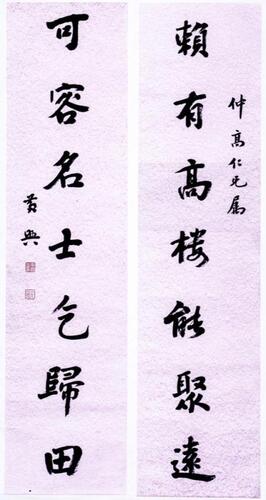 仲高仁兄属
賴有高楼能聚遠
可容名士乞歸田
黄興